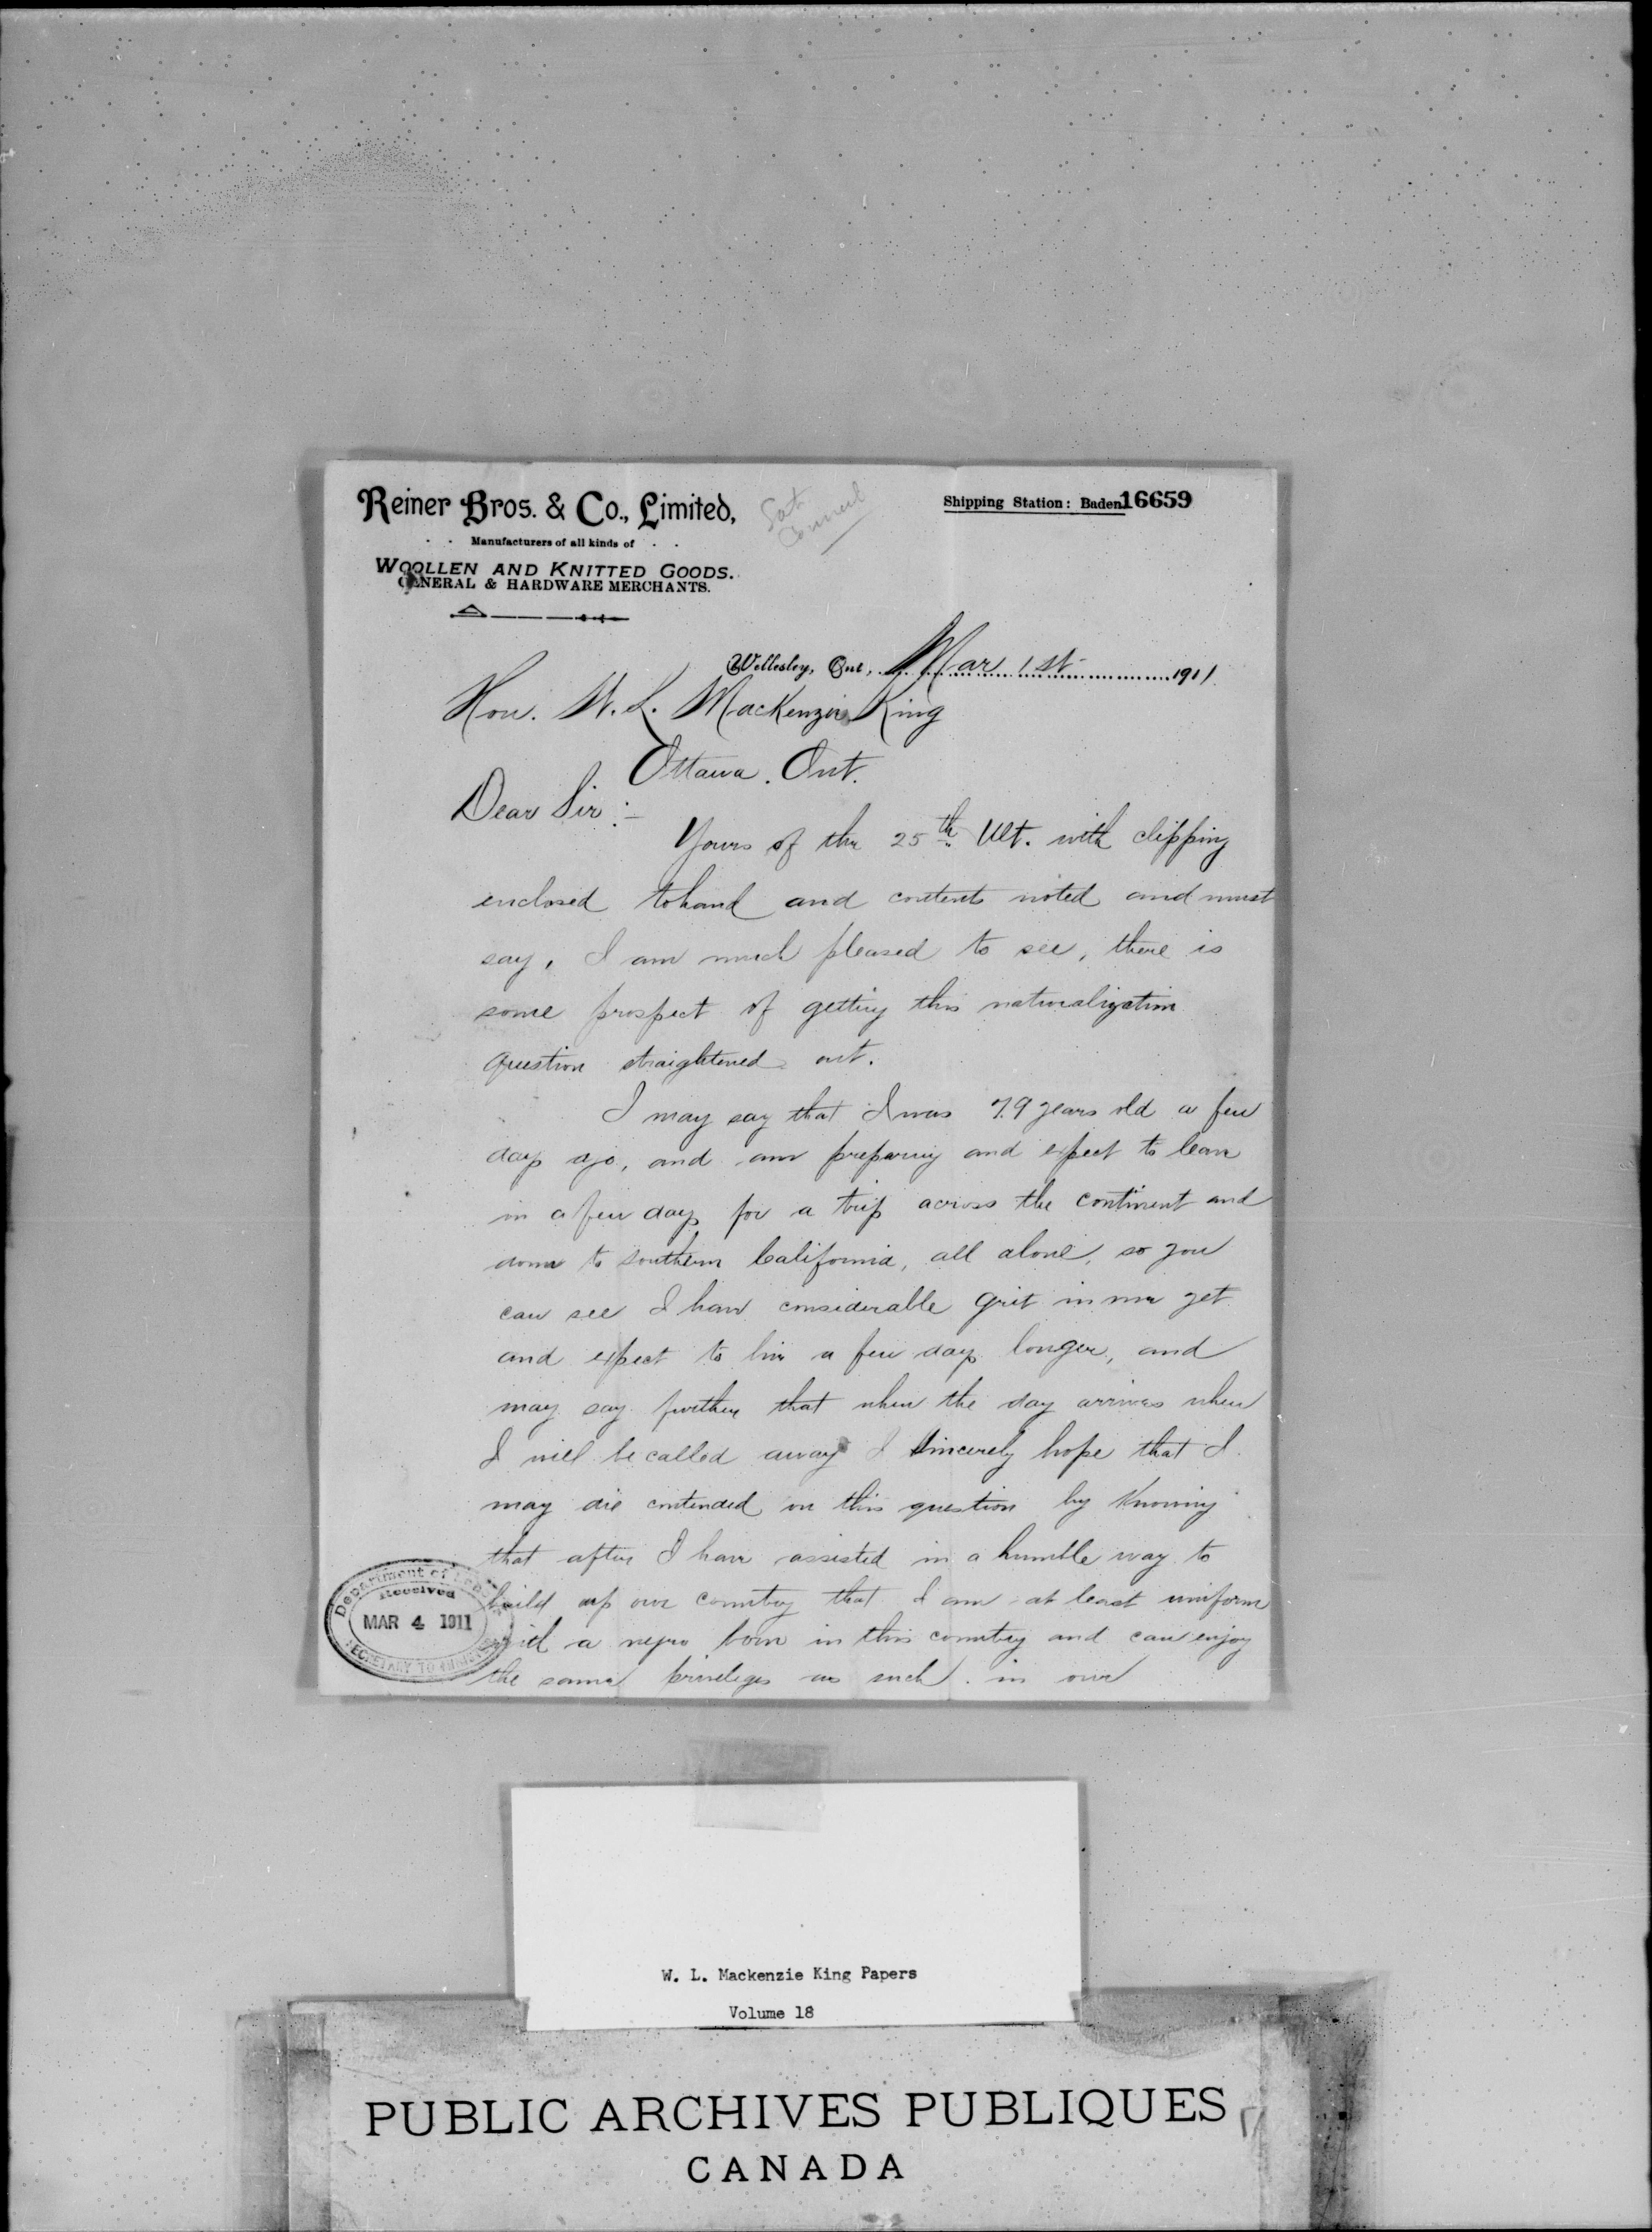 Reiner Bros. & Co., Limited,
Manufacturers of all kinds of
WOOLLEN AND KNITTED GOODS.
GENERAL & HARDWARE MERCHANTS.
Shipping Station: Baden 16659
Wellesley, Ont., Mar 1st 1911
Hon. W. L. MacKenzie King
Ottawa. Ont.
Dear Sir:-
Yours of the 25th. Ult. with clipping
enclosed tohand and contents noted and must
say, I am much pleased to see, there is
some prospect of getting this naturalization
question straightened out.
I may say that I was 79 years old a few
days ago, and am preparing and expect to leave
in a few days for a trip across the continent and
down to southern California, all alone, so you
can see I have considerable grit in me yet
and expect to live a few days longer, and
may say further that when the day arrives when
I will be called away I sincerely hope that I
may die contended on this question by knowing
that after I have assisted in a humble way to
build up our country that I am at least uniform
with a negro born in this country and can enjoy
the same privileges as such. in our
Department of
Received
MAR 4 1911
SECRETARY TO
W. L. Mackenzie King Papers
Volume 18
PUBLIC ARCHIVES PUBLIQUES
CANADA